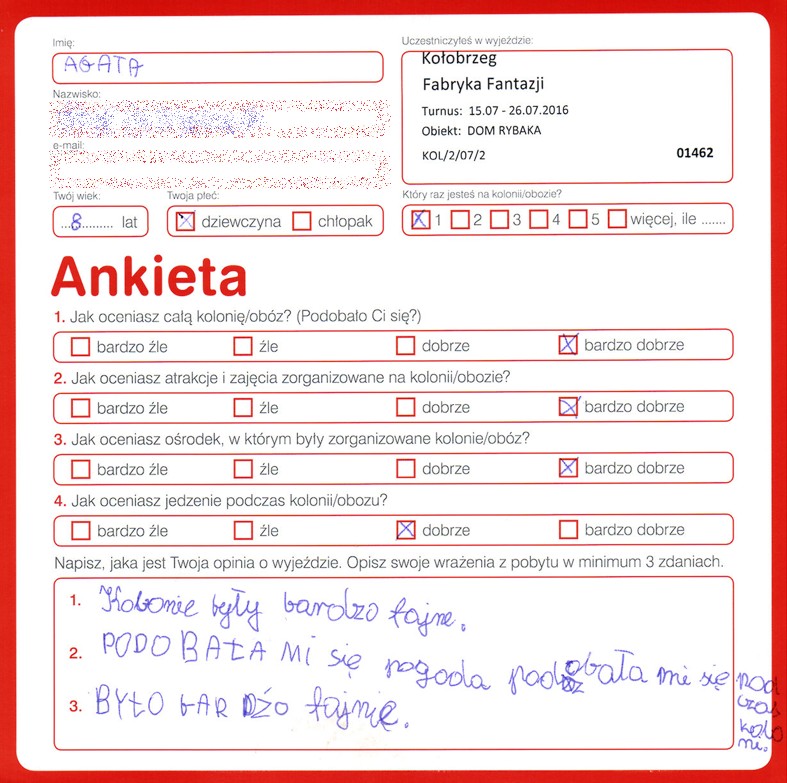 Imię:
AGATA
Nazwisko:
e-mail:
Twój wiek:
...8......... lat
Twoja płeć:
dziewczyna chłopak
Uczestniczyłeś w wyjeździe:
Kołobrzeg
Fabryka Fantazji
Turnus: 15.07 - 26.07.2016
Obiekt: DOM RYBAKA
KOL/2/07/2 01462
Który raz jesteś na kolonii/obozie?
1 2 3 4 5 więcej, ile .......
Ankieta
1. Jak oceniasz całą kolonię/obóz? (Podobało Ci się?)
bardzo źle źle dobrze bardzo dobrze
2. Jak oceniasz atrakcje i zajęcia zorganizowane na kolonii/obozie?
bardzo źle źle dobrze bardzo dobrze
3. Jak oceniasz ośrodek, w którym były zorganizowane kolonie/obóz?
bardzo źle źle dobrze bardzo dobrze
4. Jak oceniasz jedzenie podczas kolonii/obozu?
bardzo źle źle dobrze bardzo dobrze
Napisz, jaka jest Twoja opinia o wyjeździe. Opisz swoje wrażenia z pobytu w minimum 3 zdaniach.
1. Kolonie były bardzo fajne.
2. PODOBAŁA Mi się pogoda podobała mi się pod
czas
kolo
ni.
3. BYŁO bAR DŹo fajnie.